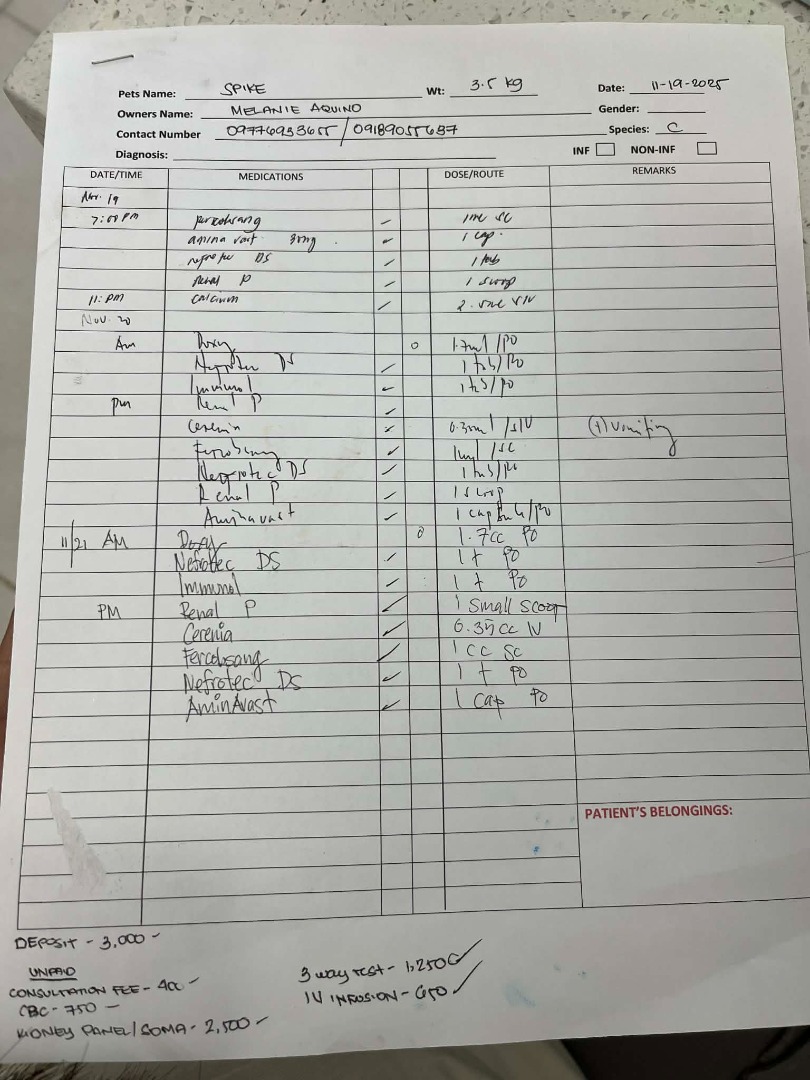 Pets Name: SPIKE Wt: 3.5 kg Date: 11-19-2025
Owners Name: MELANIE AQUINO Gender:
Contact Number 09776953655 / 09189055637 Species: C
Diagnosis: INF NON-INF
DATE/TIME MEDICATIONS DOSE/ROUTE REMARKS
Nov. 19
7:00 PM 1ml SC
amina vast 30mg 1 cap.
nefrotec DS 1 tab
Renal P 1 scoop
11: PM calcium
Nov. 20
Am Doxy o 1.7ml /PO
Nefrotec DS 1 tab/PO
Immunol 1 tab/PO
pm Renal P
Cerenia (+) vomiting
Fercobsang 1ml /SC
Nefrotec DS 1 tab/PO
Renal P 1 scoop
Aminavast 1 capsule/PO
11/21 AM Doxy o 1.7cc PO
Nefrotec DS 1 t PO
Immunol 1 t PO
PM Renal P 1 Small Scoop
Cerenia 0.35cc IV
Fercobsang 1 cc SC
Nefrotec DS 1 t PO
AminAvast 1 cap PO
PATIENT'S BELONGINGS:
DEPOSIT - 3,000 -
UNPAID
CONSULTATION FEE - 400 -
CBC - 750 -
KIDNEY PANEL/SDMA - 2,500 -
3 way test - 1,250
IV INFUSION - 650